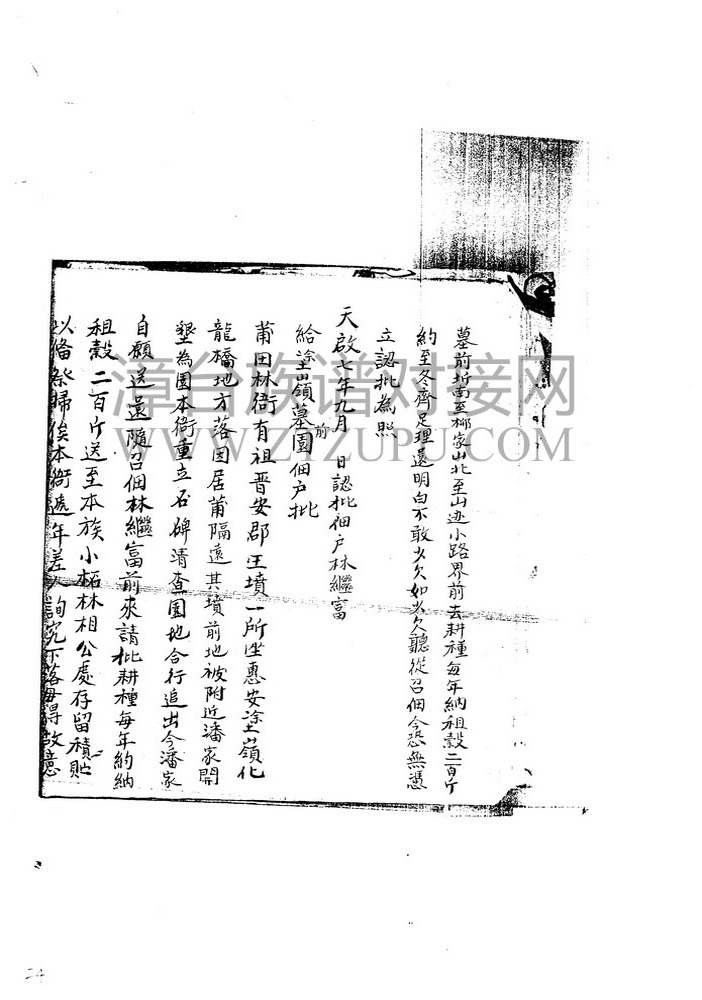 墓前坵南至柳家山北至山边小路界前去耕種每年納租穀二百斤
約至冬齊足理還明白不敢少欠如少欠聽從召佃今恐無憑
立認批為照
天啟七年九月 日認批佃户林繼富
給塗嶺墓園前佃户批
莆田林衙有祖晋安郡王墳一所坐惠安塗嶺化
龍橋地方落因居莆隔遠其墳前地被附近潘家開
墾為園本衙重立石碑清查園地合行追出今潘家
自願送還隨召佃林繼富前來請批耕種每年約納
租穀二百斤送至本族小柘林相公處存留積貯
以俻祭歸俟本衙遞年差人詢究下落毋得故意
漳台族谱对接网
WWW.ZTZUPU.COM
24